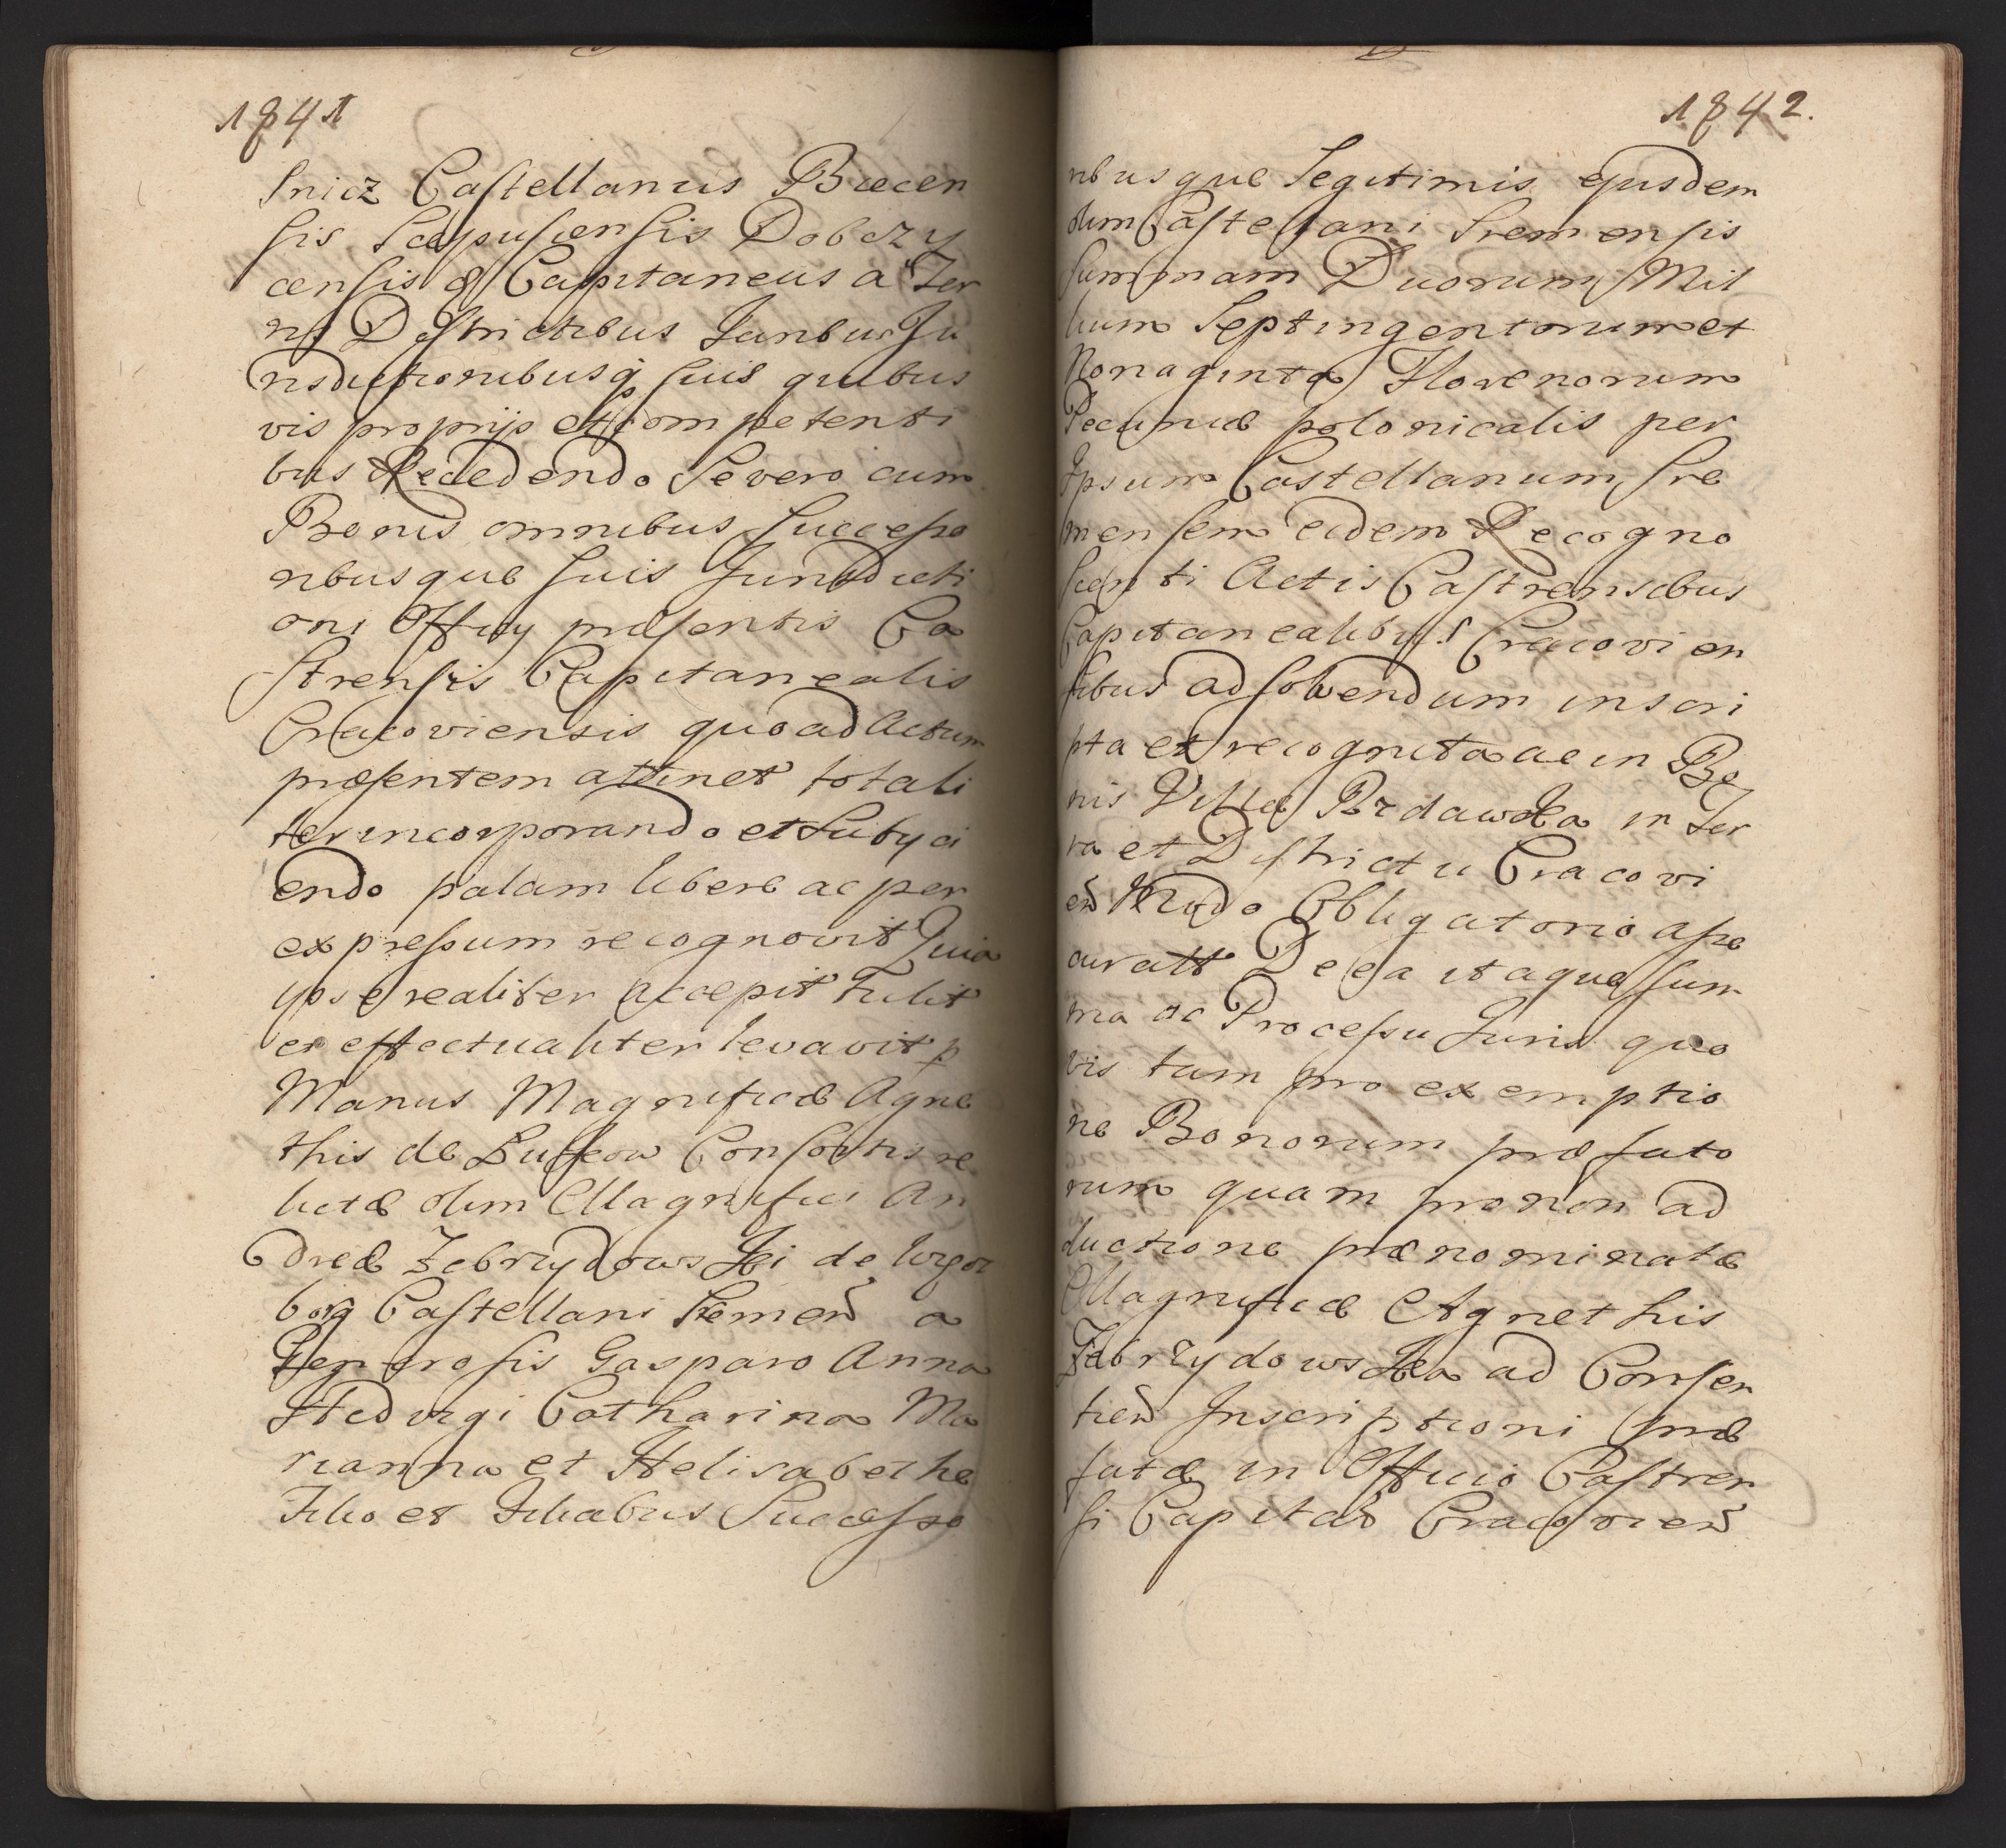 1841
snicz Castellanus Biecen
sis Scepusiensis Dobczy
censis &c Capitaneus a Ter
ris Districtibus Iuribus Iu
risdictionibusq suis quibus
vis proprijs et competenti
bus Recedendo Se vero cum
Bonis omnibus Successo
ribusque suis Jurisdicti
oni Officij præsentis Ca
strensis Capitanealis
Cracoviensis quo ad Actum
præsentem attinet totali
ter incorporando et Subyci
endo palam libere ac per
expressum recognovit Quia
ipse realiter accepit Tulit
et effectualiter levavit p
Manus Magnificæ Agne
this de Consortis re
lictæ olim Magnifici An
dreæ Zebrzydowski de
Castellani Sremen a
Generosis Gasparo Anna
Hedvigi Catharina Ma
rianna et Helisabethe
Filio et Filiabus Successo
1842.
ribusque Legitimis ejusdem
olim Castellani Sremensis
summam Duorum Mil
lium Septingentorum et
Nonaginta Florenorum
Pecuniæ polonicalis per
Ipsum Castellanum Sre
mensem eidem Recogno
scenti Actis Castrensibus
Capitanealibus Cracovien
sibus ad solvendum inscri
pta et recognita ac in Bo
nis Villæ in Ter
ra et Districtu Cracovi
en Modo Obligatorio asse
curatt De ea itaque sum
ma ac Processu Juris quo
vis tam pro exemptio
ne Bonorum præfato
rum quam pro non ad
ductione prænominatæ
Magnificæ Agnethis
Zebrzydowska ad Consen
tien Inscriptioni præ
fatæ in Officio Castren
si Capitan Cracovien